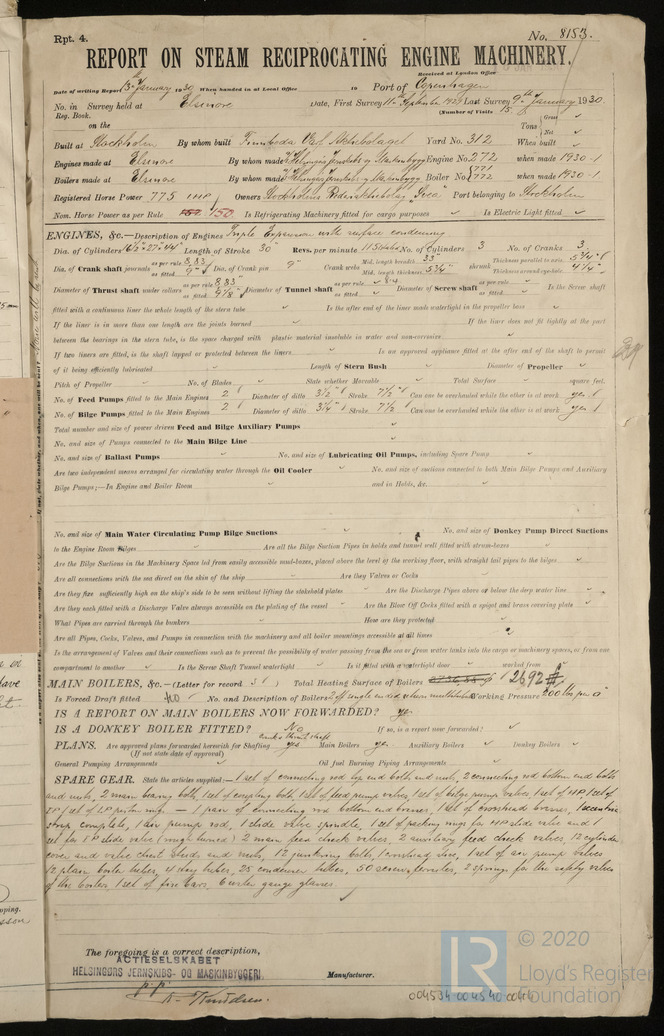 Rpt. 4.
No. 8153.
REPORT ON STEAM RECIPROCATING ENGINE MACHINERY.
Received at London Office
Date of writing Report 13th January 1930 When handed in at Local Office 19 Port of Copenhagen
No. in Survey held at Elsinore Date, First Survey 11th September 1929 Last Survey 9th January 1930
Reg. Book. (Number of Visits 15.
on the Tons Gross Net
Built at Stockholm By whom built Yard No. 312 When built
Engines made at Elsinore By whom made Engine No. 272 when made 1930-1
Boilers made at Elsinore By whom made Boiler No. 771 772 when made 1930-1
Registered Horse Power 775 IHP Owners Stockholms Rederiaktiebolag "Svea" Port belonging to Stockholm
Nom. Horse Power as per Rule 150 Is Refrigerating Machinery fitted for cargo purposes Is Electric Light fitted
ENGINES, &c.—Description of Engines Triple Expansion with surface condensing
Dia. of Cylinders Length of Stroke 30" Revs. per minute No. of Cylinders 3 No. of Cranks 3
Dia. of Crank shaft journals as per rule 8.83 as fitted 9" Dia. of Crank pin 9" Crank webs Mid. length breadth Mid. length thickness 5 3/4" shrunk Thickness parallel to axis 5 3/4" Thickness around eye-hole 4 1/4"
Diameter of Thrust shaft under collars as per rule 8.83 as fitted 9 1/8" Diameter of Tunnel shaft as per rule as fitted Diameter of Screw shaft as per rule as fitted Is the Screw shaft
fitted with a continuous liner the whole length of the stern tube Is the after end of the liner made watertight in the propeller boss
If the liner is in more than one length are the joints burned If the liner does not fit tightly at the part
between the bearings in the stern tube, is the space charged with plastic material insoluble in water and non-corrosive
If two liners are fitted, is the shaft lapped or protected between the liners Is an approved appliance fitted at the after end of the shaft to permit
of it being efficiently lubricated Length of Stern Bush Diameter of Propeller
Pitch of Propeller No. of Blades State whether Moveable Total Surface square feet.
No. of Feed Pumps fitted to the Main Engines 2 Diameter of ditto 3 1/2" Stroke 7 1/2" Can one be overhauled while the other is at work yes
No. of Bilge Pumps fitted to the Main Engines 2 Diameter of ditto 3 1/4" Stroke 7 1/2 Can one be overhauled while the other is at work yes
Total number and size of power driven Feed and Bilge Auxiliary Pumps
No. and size of Pumps connected to the Main Bilge Line
No. and size of Ballast Pumps No. and size of Lubricating Oil Pumps, including Spare Pump
Are two independent means arranged for circulating water through the Oil Cooler No. and size of suctions connected to both Main Bilge Pumps and Auxiliary
Bilge Pumps;—In Engine and Boiler Room and in Holds, &c.
No. and size of Main Water Circulating Pump Bilge Suctions No. and size of Donkey Pump Direct Suctions
to the Engine Room Bilges Are all the Bilge Suction Pipes in holds and tunnel well fitted with strum-boxes
Are the Bilge Suctions in the Machinery Space led from easily accessible mud-boxes, placed above the level of the working floor, with straight tail pipes to the bilges
Are all connections with the sea direct on the skin of the ship Are they Valves or Cocks
Are they fixed sufficiently high on the ship's side to be seen without lifting the stokehold plates Are the Discharge Pipes above or below the deep water line
Are they each fitted with a Discharge Valve always accessible on the plating of the vessel Are the Blow Off Cocks fitted with a spigot and brass covering plate
What Pipes are carried through the bunkers How are they protected
Are all Pipes, Cocks, Valves, and Pumps in connection with the machinery and all boiler mountings accessible at all times
Is the arrangement of Valves and their connections such as to prevent the possibility of water passing from the sea or from water tanks into the cargo or machinery spaces, or from one
compartment to another Is the Screw Shaft Tunnel watertight Is it fitted with a watertight door worked from
MAIN BOILERS, &c.—(Letter for record S) Total Heating Surface of Boilers 2692
Is Forced Draft fitted No No. and Description of Boilers Working Pressure 200 lbs per □"
IS A REPORT ON MAIN BOILERS NOW FORWARDED? yes
IS A DONKEY BOILER FITTED? No If so, is a report now forwarded?
PLANS. Are approved plans forwarded herewith for Shafting yes Main Boilers yes Auxiliary Boilers Donkey Boilers
(If not state date of approval)
General Pumping Arrangements Oil fuel Burning Piping Arrangements
SPARE GEAR. State the articles supplied:— 1 set of connecting rod top end bolts and nuts, 2 connecting rod bottom end bolts
and nuts, 2 main bearing bolts, 1 set of coupling bolts, 1 set of feed pump valves, 1 set of bilge pump valves, 1 set of HP, 1 set of
IP, 1 set of LP piston rings — 1 pair of connecting rod bottom end brasses, 1 set of crosshead brasses, 1 eccentric
strap complete, 1 air pump rod, 1 slide valve spindle, 1 set of packing rings for HP slide valve and 1
set for IP slide valve (rough turned) 2 main feed check valves, 2 auxiliary feed check valves, 12 cylinder
cover and valve chest studs and nuts, 12 junkring bolts, 1 crosshead shoe, 1 set of air pump valves
12 plain boiler tubes, 4 stay tubes, 25 condenser tubes, 50 screw ferrules, 2 springs for the safety valves
of the boilers, 1 set of fire bars, 6 water gauge glasses
The foregoing is a correct description,
ACTIESELSKABET
HELSINGØRS JERNSKIBS- OG MASKINBYGGERI.
Manufacturer.
p.p. Knudsen.
© 2020
LR
Lloyd's Register
Foundation